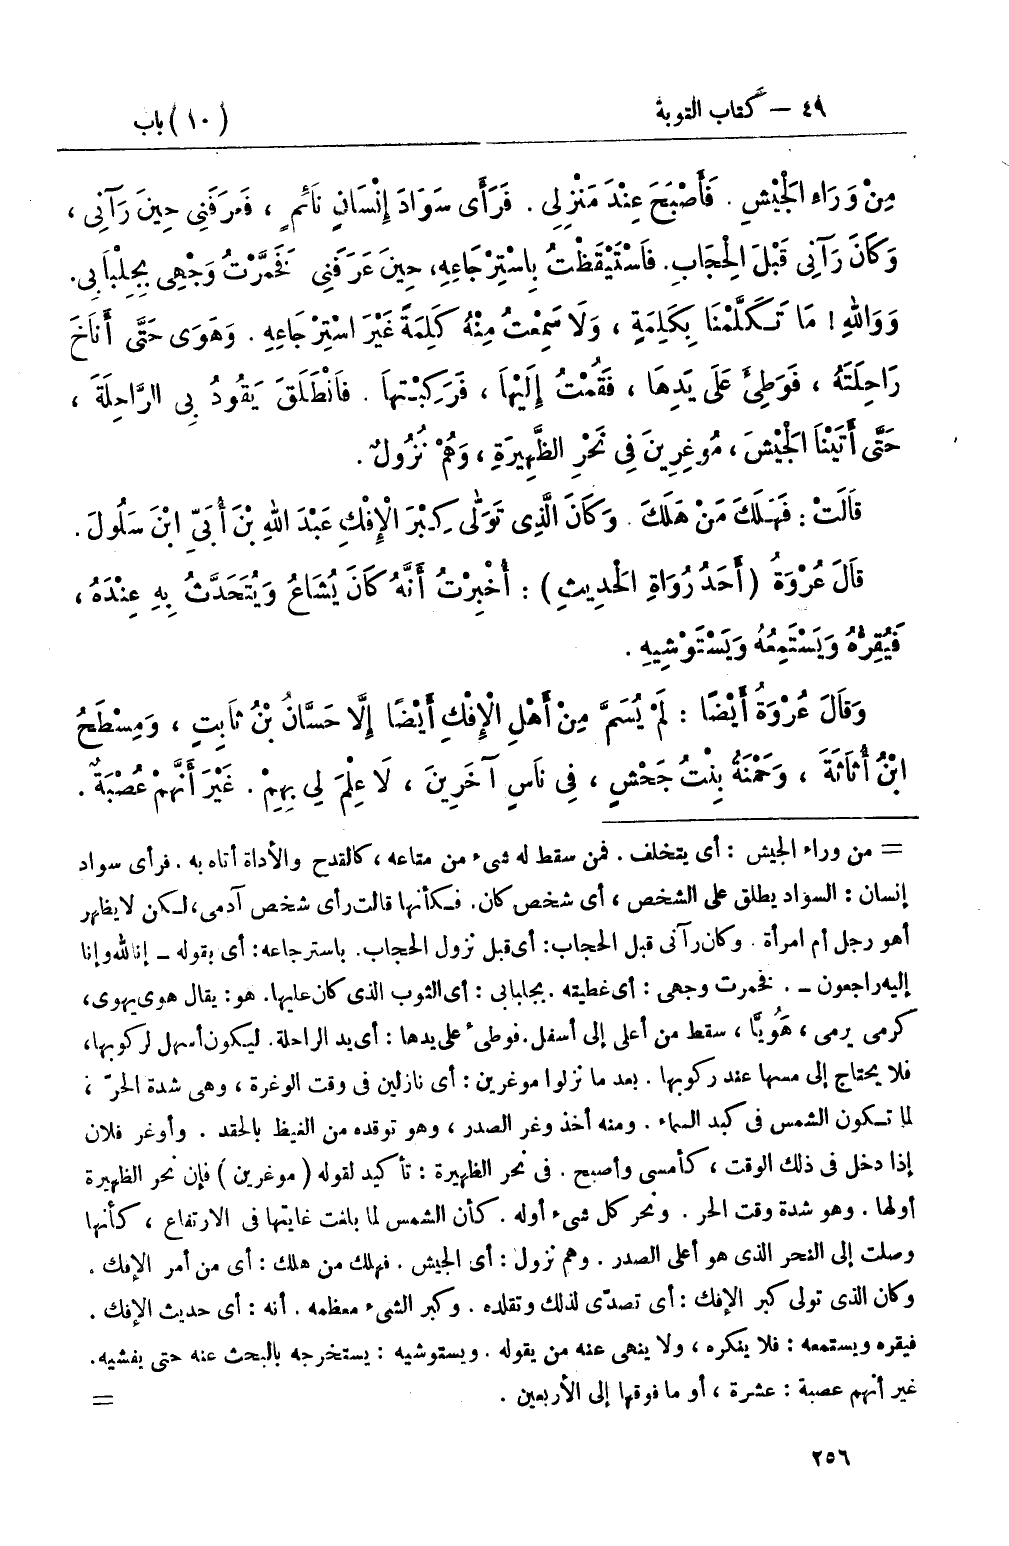 ٤٩ – كتاب التوبة
(١٠) باب
مِنْ وَرَاءِ الْجَيْشِ . فَأَصْبَحَ عِنْدَ مَنْزِلِي . فَرَأَى سَوَادَ إِنْسَانٍ نَائِمٍ ، فَعَرَفَنِي حِينَ رَآنِى ،
وَكَانَ رَآنِى قَبْلَ الْحِجَابِ. فَاسْتَيْقَظْتُ بِاسْتِرْجَاعِهِ، حِينَ عَرَفَنِي فَخَمَّرْتُ وَجْهِى بِجِلْبَابِى.
وَوَاللهِ! مَا تَكَلَّمْنَا بِكَلِمَةٍ ، وَلَا سَمِعْتُ مِنْهُ كَلِمَةً غَيْرَ اسْتِرْجَاعِهِ . وَهَوَى حَتَّى أَنَاخَ
رَاحِلَتَهُ ، فَوَطِئَ عَلَى يَدِهَا ، فَقُمْتُ إِلَيْهَا ، فَرَكِبْتُهَا . فَانْطَلَقَ يَقُودُ بِى الرَّاحِلَةَ ،
حَتَّى أَتَيْنَا الْجَيْشَ، مُوغِرِينَ فِى نَحْرِ الظَّهِيرَةِ، وَهُمْ نُزُولٌ .
قَالَتْ: فَهَلَكَ مَنْ هَلَكَ . وَكَانَ الَّذِى تَوَلَّى كِبْرَ الْإِفْكِ عَبْدَ اللهِ بْنَ أُبَىِّ ابْنَ سَلُولَ.
قَالَ عُرْوَةُ (أَحَدُ رُوَاةِ الْحَدِيثِ) : أُخْبِرْتُ أَنَّهُ كَانَ يُشَاعُ وَيُتَحَدَّثُ بِهِ عِنْدَهُ ،
فَيُقِرُّهُ وَيَسْتَمِعُهُ وَيَسْتَوْشِيهِ .
وَقَالَ عُرْوَةُ أَيْضًا : لَمْ يُسَمَّ مِنْ أَهْلِ الْإِفْكِ أَيْضًا إِلَّا حَسَّانُ بْنُ ثَابِتٍ ، وَمِسْطَحُ
ابْنُ أُثَاثَةَ ، وَحَمْنَةُ بِنْتُ جَحْشٍ ، فِى نَاسٍ آخَرِينَ ، لَا عِلْمَ لِى بِهِمْ . غَيْرَ أَنَّهُمْ عُصْبَةٌ .
= من وراء الجيش : أى يتخلف . فمن سقط له شىء من متاعه ، كالقدح والأداة أتاه به . فرأى سواد
إنسان : السواد يطلق على الشخص ، أى شخص كان. فكأنها قالت رأى شخص آدمى، لكن لا يظهر
أهو رجل أم امرأة . وكان رآنى قبل الحجاب: أى قبل نزول الحجاب. باسترجاعه: أى بقوله – إنا لله وإنا
إليه راجعون – . فخمرت وجهى : أى غطيته . بجلبابى : أى الثوب الذى كان عليها. هو: يقال هوى يهوى،
كرمى يرمى ، هُويًّا ، سقط من أعلى إلى أسفل. فوطىء على يدها : أى يد الراحلة. ليكون أسهل لركوبها،
فلا يحتاج إلى مسها عند ركوبها . بعد ما نزلوا موغرين : أى نازلين فى وقت الوغرة ، وهى شدة الحرّ ،
لما تكون الشمس فى كبد السماء . ومنه أخذ وغر الصدر ، وهو توقده من الغيظ بالحقد . وأوغر فلان
إذا دخل فى ذلك الوقت ، كأمسى وأصبح . فى نحر الظهيرة : تأكيد لقوله (موغرين) فإن نحر الظهيرة
أولها . وهو شدة وقت الحر . ونحر كل شىء أوله . كأن الشمس لما بلغت غايتها فى الارتفاع ، كأنها
وصلت إلى النحر الذى هو أعلى الصدر . وهم نزول : أى الجيش . فهلك من هلك : أى من أمر الإفك .
وكان الذى تولى كبر الإفك : أى تصدّى لذلك وتقلده . وكبر الشىء معظمه . أنه : أى حديث الإفك .
فيقره ويستمعه : فلا ينكره ، ولا ينهى عنه من يقوله . ويستوشيه : يستخرجه بالبحث عنه حتى يفشيه.
غير أنهم عصبة : عشرة ، أو ما فوقها إلى الأربعين .
=
٢٥٦